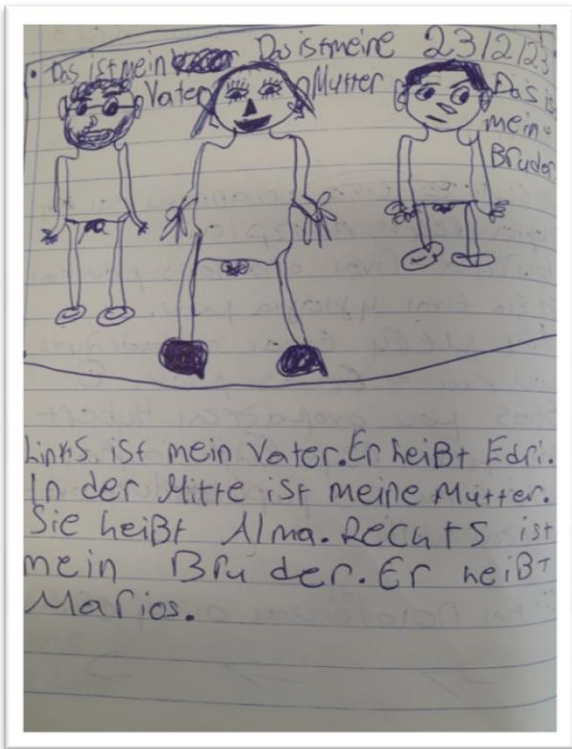 Das ist mein Vater
Das ist meine Mutter
23/2/23
Das is
mein
Bruder
Links ist mein Vater. Er heißt Edri.
In der Mitte ist meine Mutter.
Sie heißt Alma. Rechts ist
mein Bruder. Er heißt
Marios.